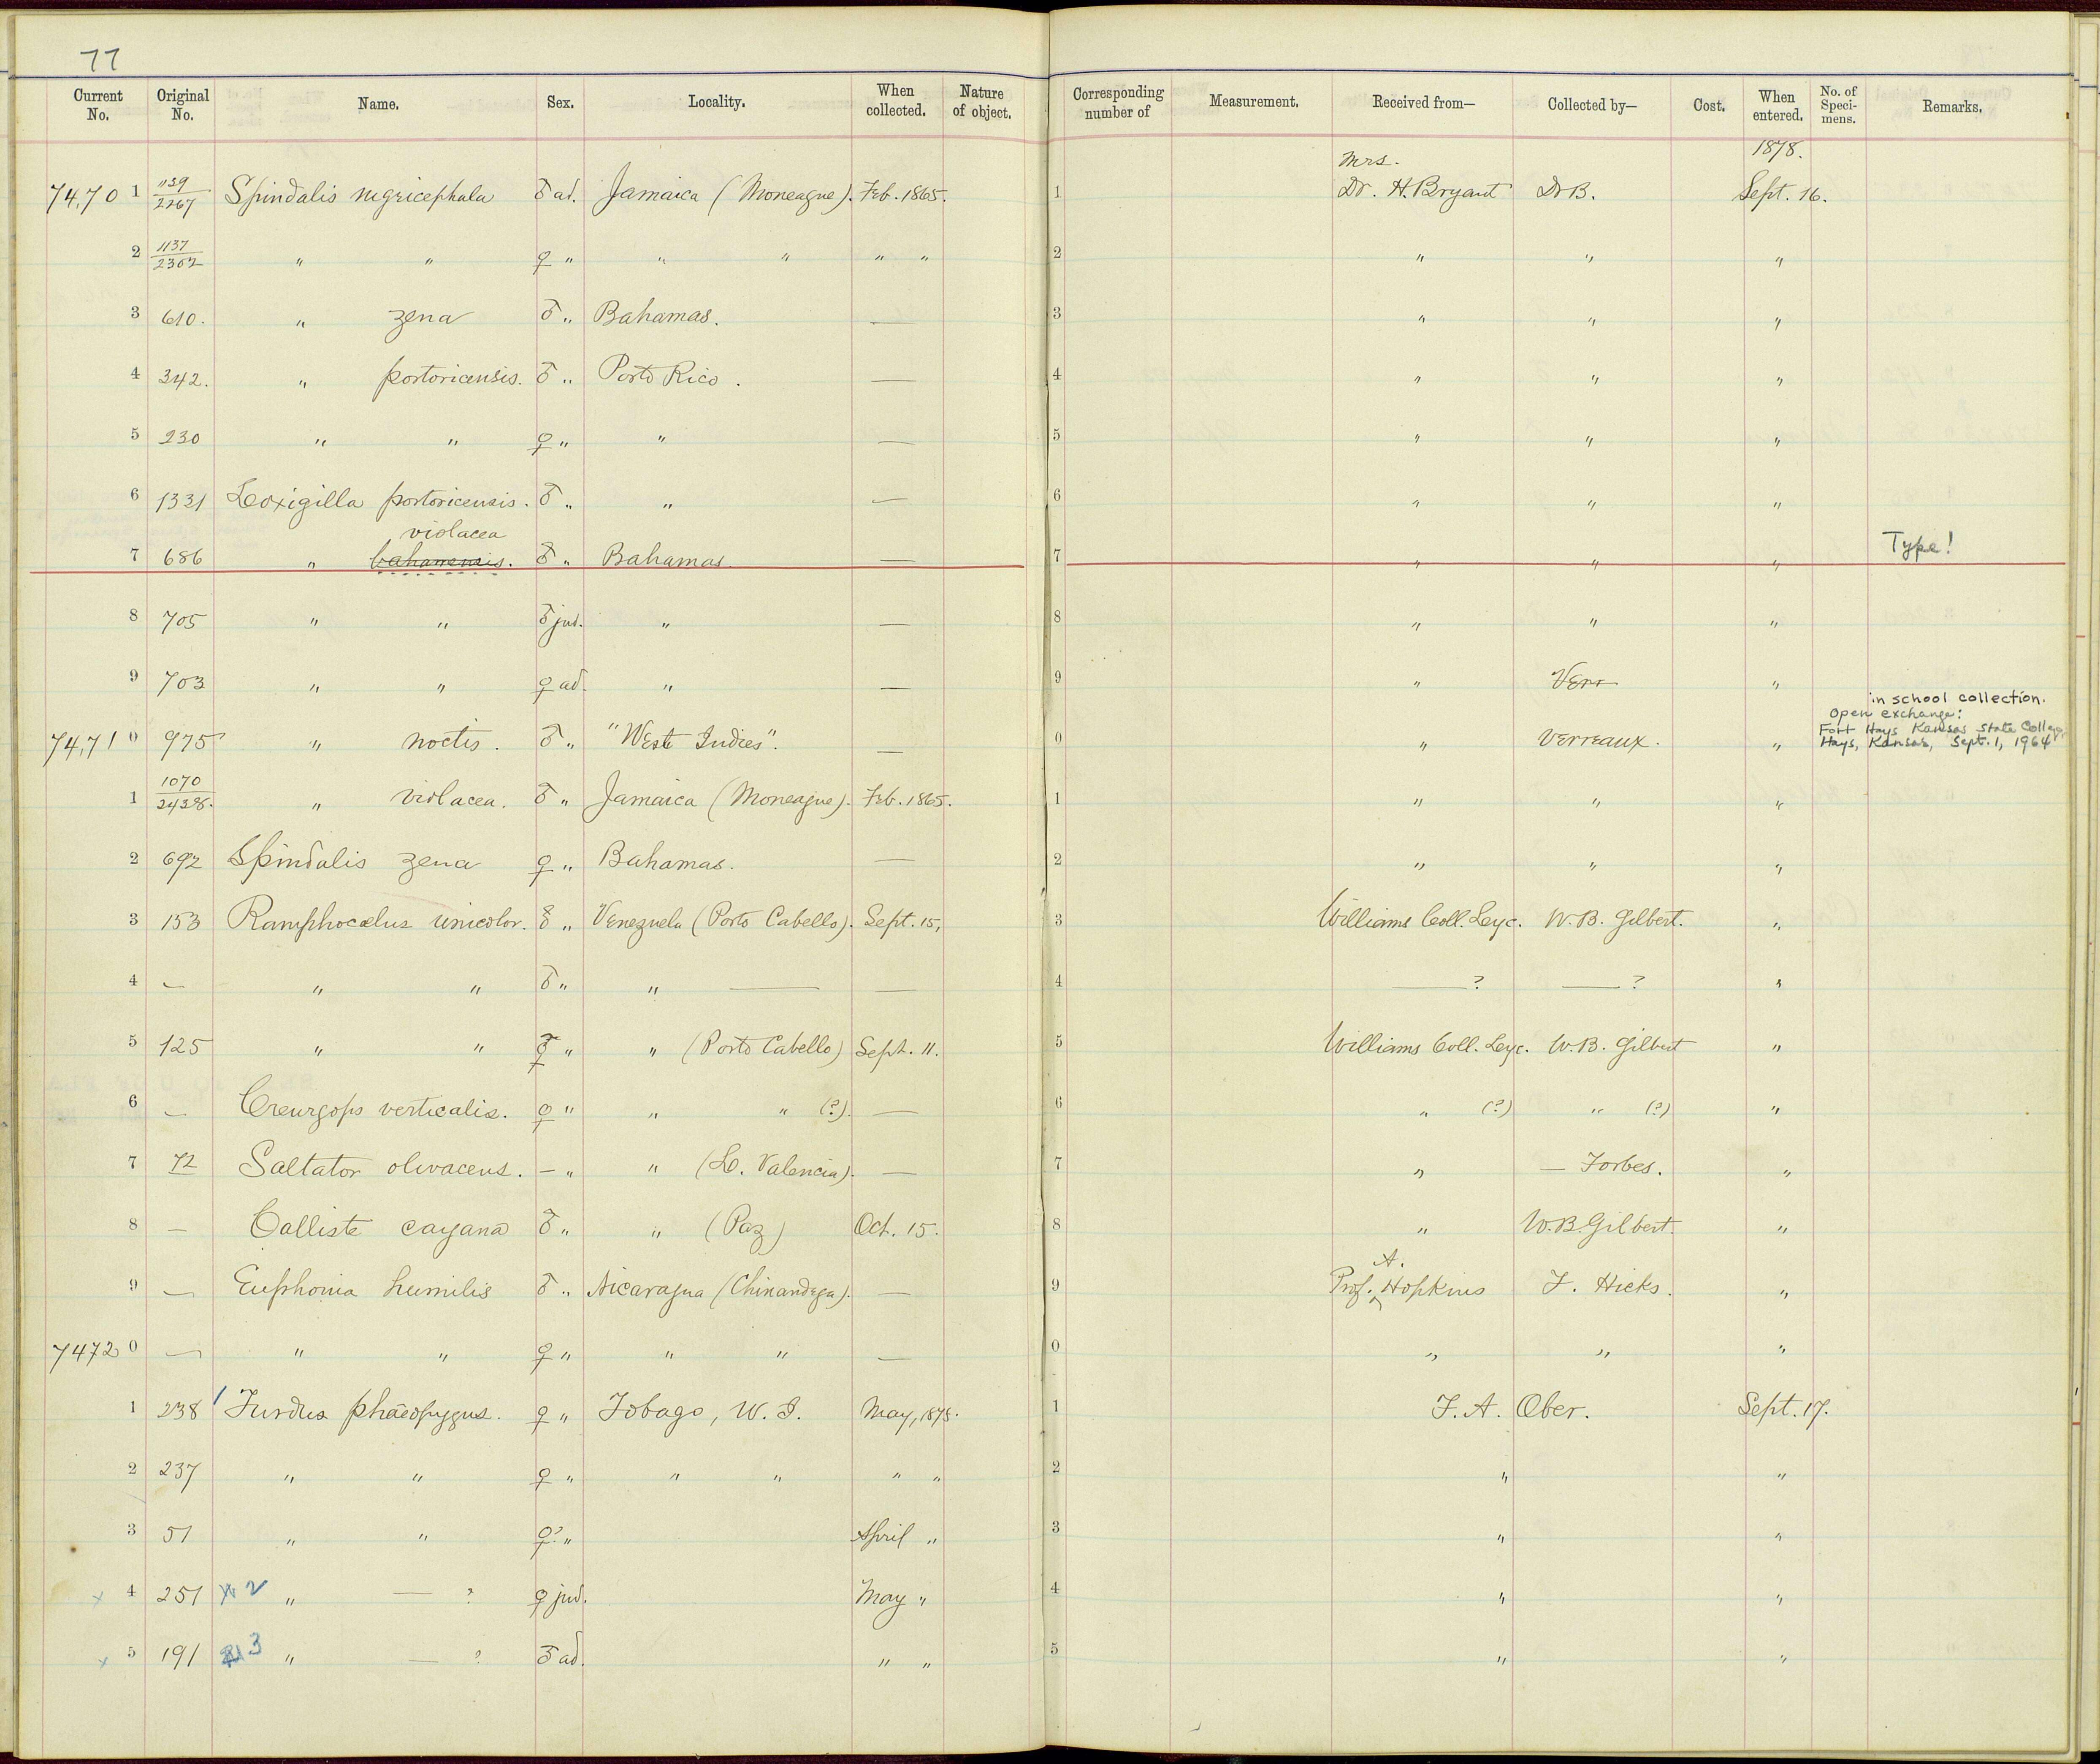 77
Current No. Original No. Name. Sex. Locality. When collected. Nature of object. Corresponding number of Measurement. Received from— Collected by— Cost. When entered. No. of Speci-mens. Remarks.
Mrs. 1878.
74,70 1 1139/2267 Spindalis nigricephala ♂ ad. Jamaica (Moneague). Feb. 1865. 1 Dr. H. Bryant Dr B. Sept. 16.
2 1137/2362 " " ♀ " " " " " 2 " " "
3 610. " zena ♂ " Bahamas. — 3 " " "
4 342. " portoricensis. ♂ " Porto Rico. — 4 " " "
5 230 " " ♀ " " — 5 " " "
6 1331 Loxigilla portoricensis. ♂ " " — 6 " " "
violacea
7 686 " bahamensis. ♂ " Bahamas. — 7 " " " Type!
8 705 " " ♂ juv. " — 8 " " "
9 703 " " ♀ ad. " — 9 " Verr "
in school collection.
Open exchange:
Fort Hays Kansas State College,
74,71 0 975 " noctis. ♂ " "West Indies". — 0 " Verreaux. " Hays, Kansas, Sept. 1, 1964
1 1070/2438. " violacea. ♂ " Jamaica (Moneague). Feb. 1865. 1 " " "
2 692 Spindalis zena ♀ " Bahamas. — 2 " " "
3 153 Ramphocœlus unicolor. " Venezuela (Porto Cabello). Sept. 15, 3 Williams Coll. Lyc. W. B. Gilbert. "
4 — " " ♂ " " — — 4 — ? — ? "
5 125 " " ♀ " " (Porto Cabello) Sept. 11. 5 Williams Coll. Lyc. W. B. Gilbert "
6 — Creurgops verticalis. ♀ " " " (?). — 6 " (?) " (?) "
7 72 Saltator olivaceus. — " " (L. Valencia). — 7 " — Forbes. "
8 — Calliste cayana ♂ " " (Paz) Oct. 15. 8 " W. B. Gilbert. "
A.
9 — Euphonia humilis ♂ " Nicaragua (Chinandega). — 9 Prof. ^ Hopkins F. Hicks. "
7472 0 — " " ♀ " " " — 0 " " "
1 238 Turdus phaeopygus. ♀ " Tobago, W. I. May, 1878. 1 F. A. Ober. Sept. 17.
2 237 " " ♀ " " " " " 2 " "
3 51 " " ♀? " April " 3 " "
x 4 251 2 " — ? ♀ juv. May " 4 " "
x 5 191 3 " — ? ♂ ad. " " 5 " "